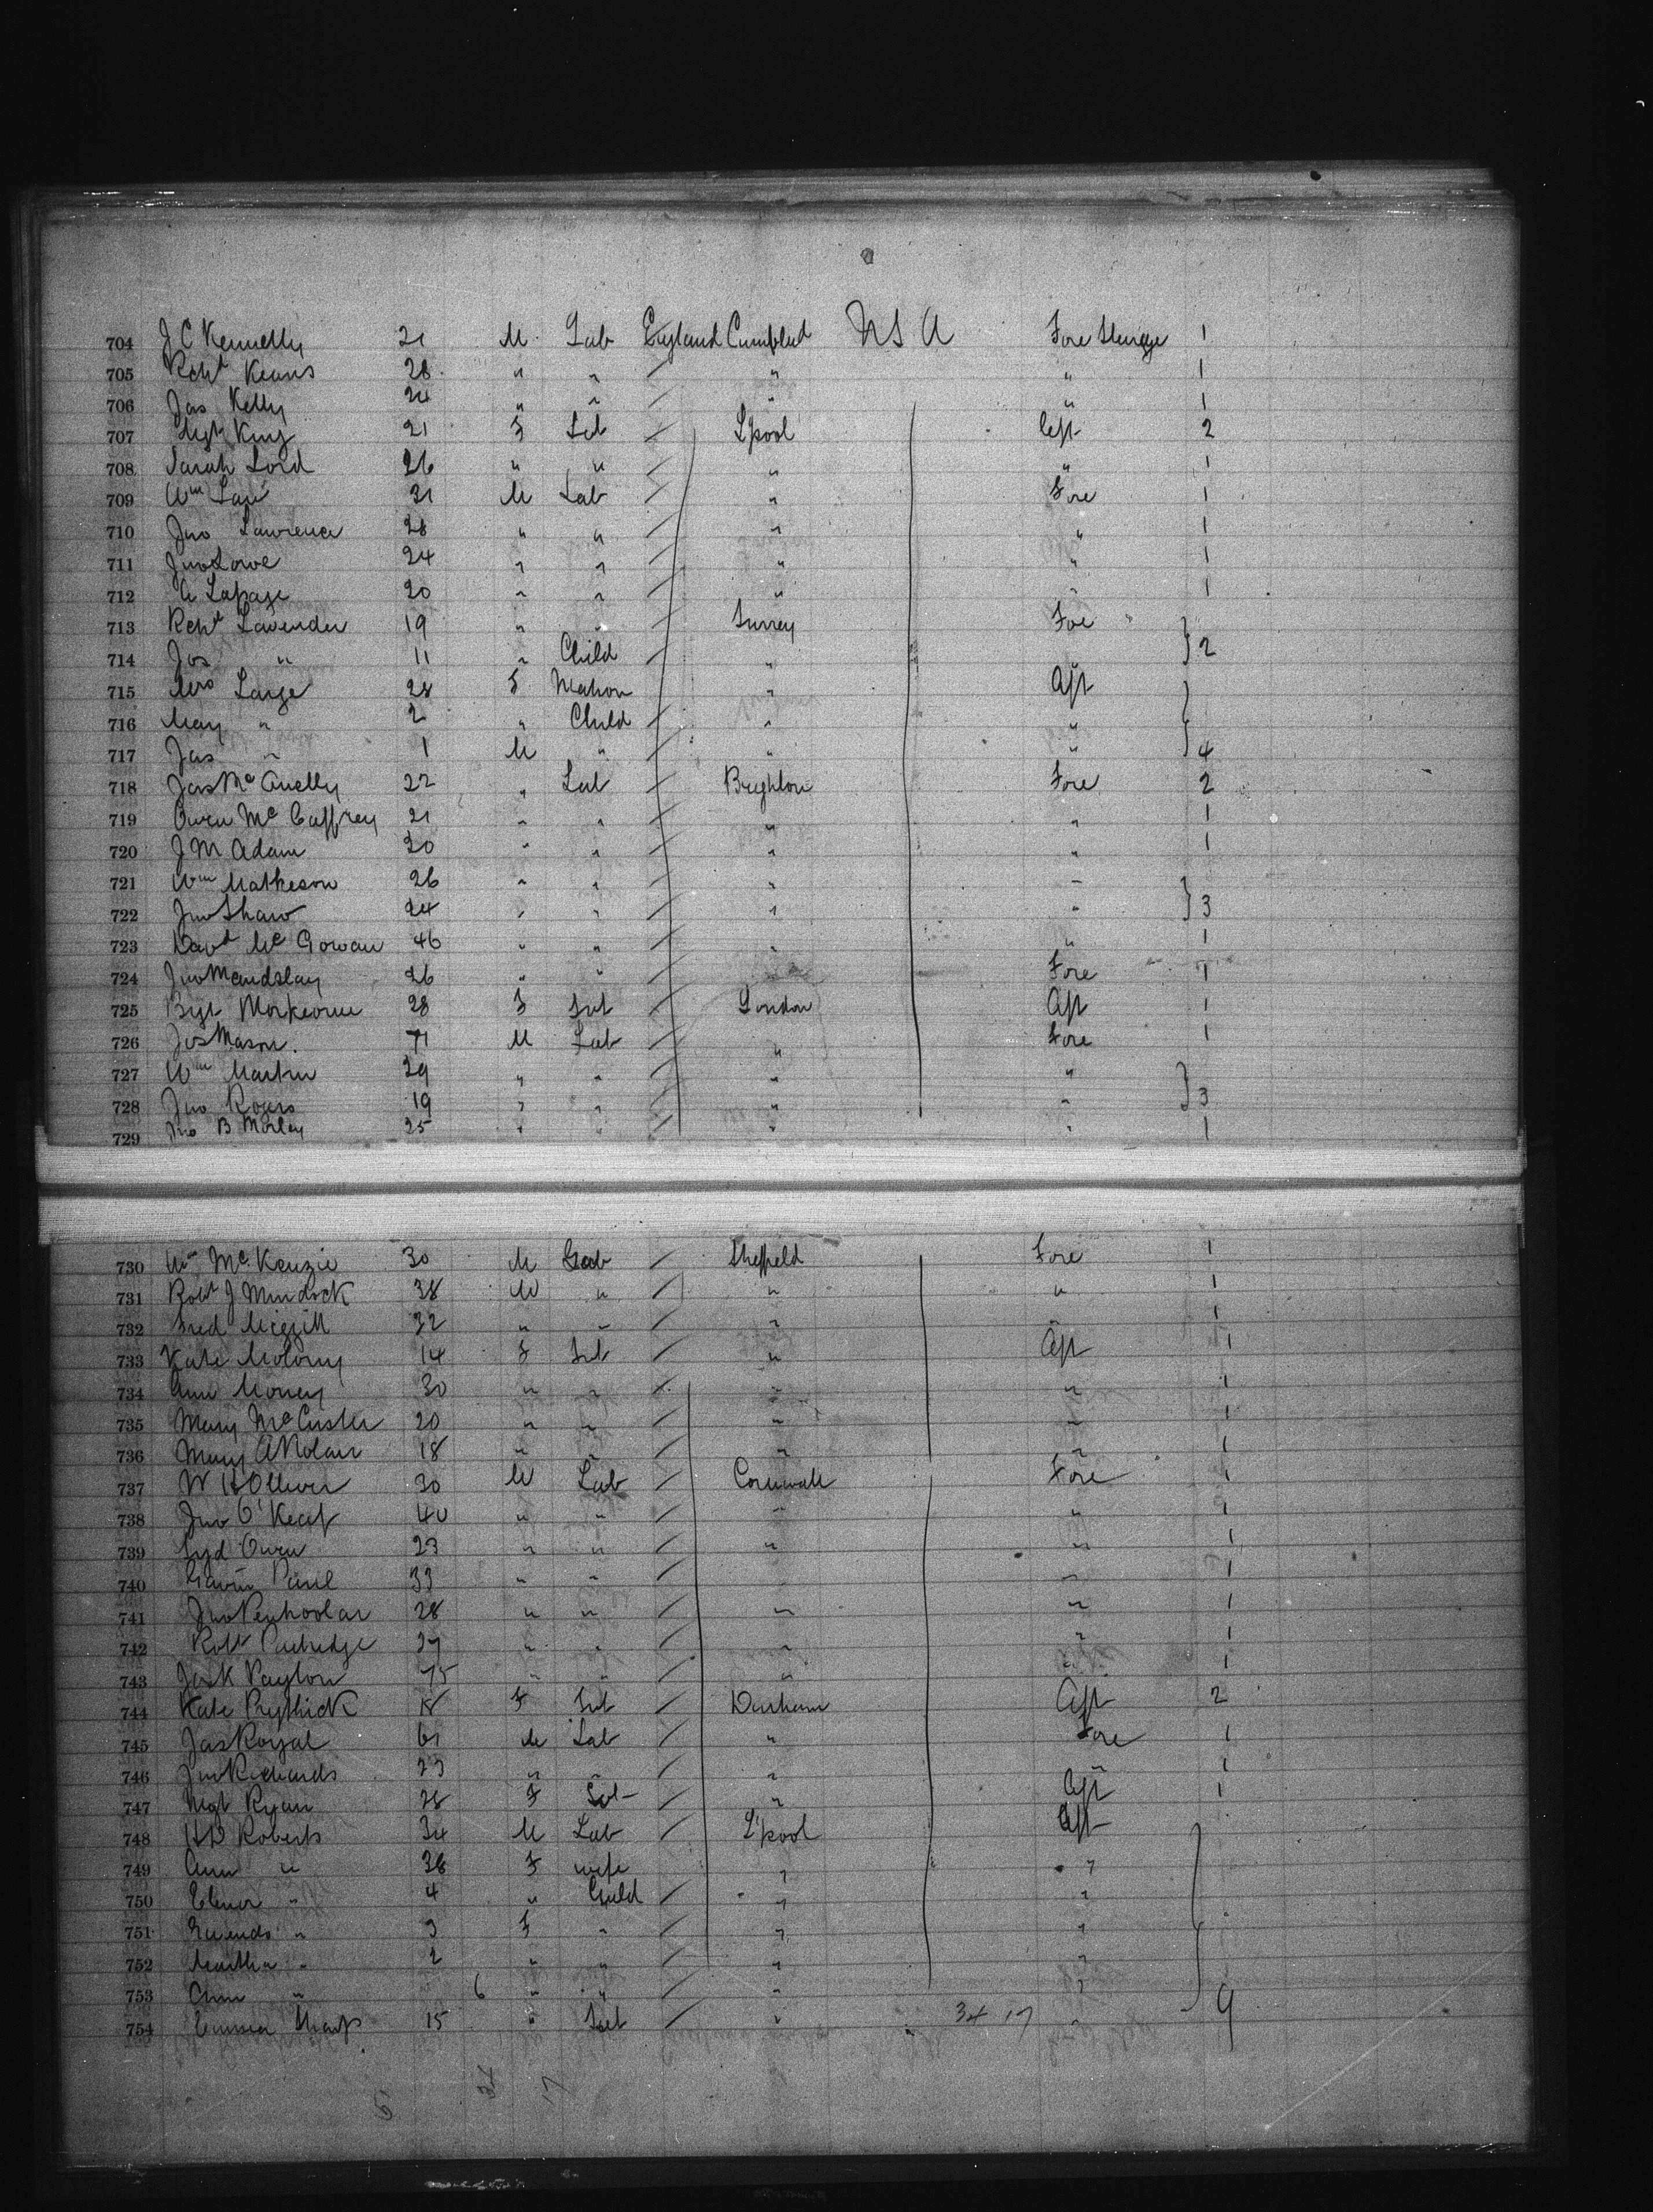 704 J C Kennelly 21 M Lab England Cumbld U S A Fore Steerage 1
705 Robt Keans 28 " " / " " 1
706 Jas Kelly 24 " " / " " 1
707 Mgt King 21 F / L'pool Aft 2
708 Sarah Lord 26 " " / " " 1
709 Wm Law 31 M Lab / " Fore 1
710 Jno Lawrence 28 " " / " " 1
711 Jno Lowe 24 " " / " " 1
712 A Lapage 20 " " / " " 1
713 Robt Lavender 19 " " / Surrey Fore
714 Jos " 11 " Child / " " } 2
715 Mrs Large 28 F Matron " Aft
716 May " 2 " Child / " "
717 Jas " 1 M " / " " } 4
718 Jas Mc Anelly 22 " Lab / Brighton Fore 2
719 Owen Mc Caffrey 21 " " / " " 1
720 J M Adam 20 " " / " " 1
721 Wm Matheson 26 " " / " "
722 Jno Shaw 24 " " / " " } 3
723 Davd Mc Gowan 46 " " / " " 1
724 Jno Maudslay 26 " " / Fore 1
725 Bgt 28 F / London Aft 1
726 Jos Mason. 71 M Lab / " Fore 1
727 Wm Martin 29 " " / " "
728 Jno 19 " " / " " } 3
729 Jno B Morley 25 " " " " 1
730 Wm Mc Kenzie 30 M Lab / Sheffield Fore 1
731 Robt J Murdock 38 M " / " " 1
732 Fred 32 " " / " " 1
733 Kate Molony 14 F / " Aft 1
734 Ann Money 30 " " / " " 1
735 Mary 20 " " / " " 1
736 Mary A Nolan 18 " " / " " 1
737 W H Olliver 30 M Lab / Cornwall Fore 1
738 Jno O'Keaf 40 " " / " " 1
739 Syd Owen 23 " " / " " 1
740 Gavin Paul 33 " " / " 1
741 Jno 28 " " / " " 1
742 Robt Partridge 27 " " / " " 1
743 Paylow " " / " " 1
744 Kate 18 F / Durham Aft 2
745 Jas Royal 61 M Lab / " Fore 1
746 Jno Richards 23 " " / " " 1
747 Mgt Ryan 28 F / " Aft 1
748 Roberts 34 M Lab / L'pool Aft
749 Ann " 38 F wife " "
750 " 4 " Child / " "
751 " 3 F " / " "
752 Martha " 2 " " / " "
753 Ann " 6 " " / " "
754 Emma Sharp 15 " / " 34 17 " } 9
6 34 17